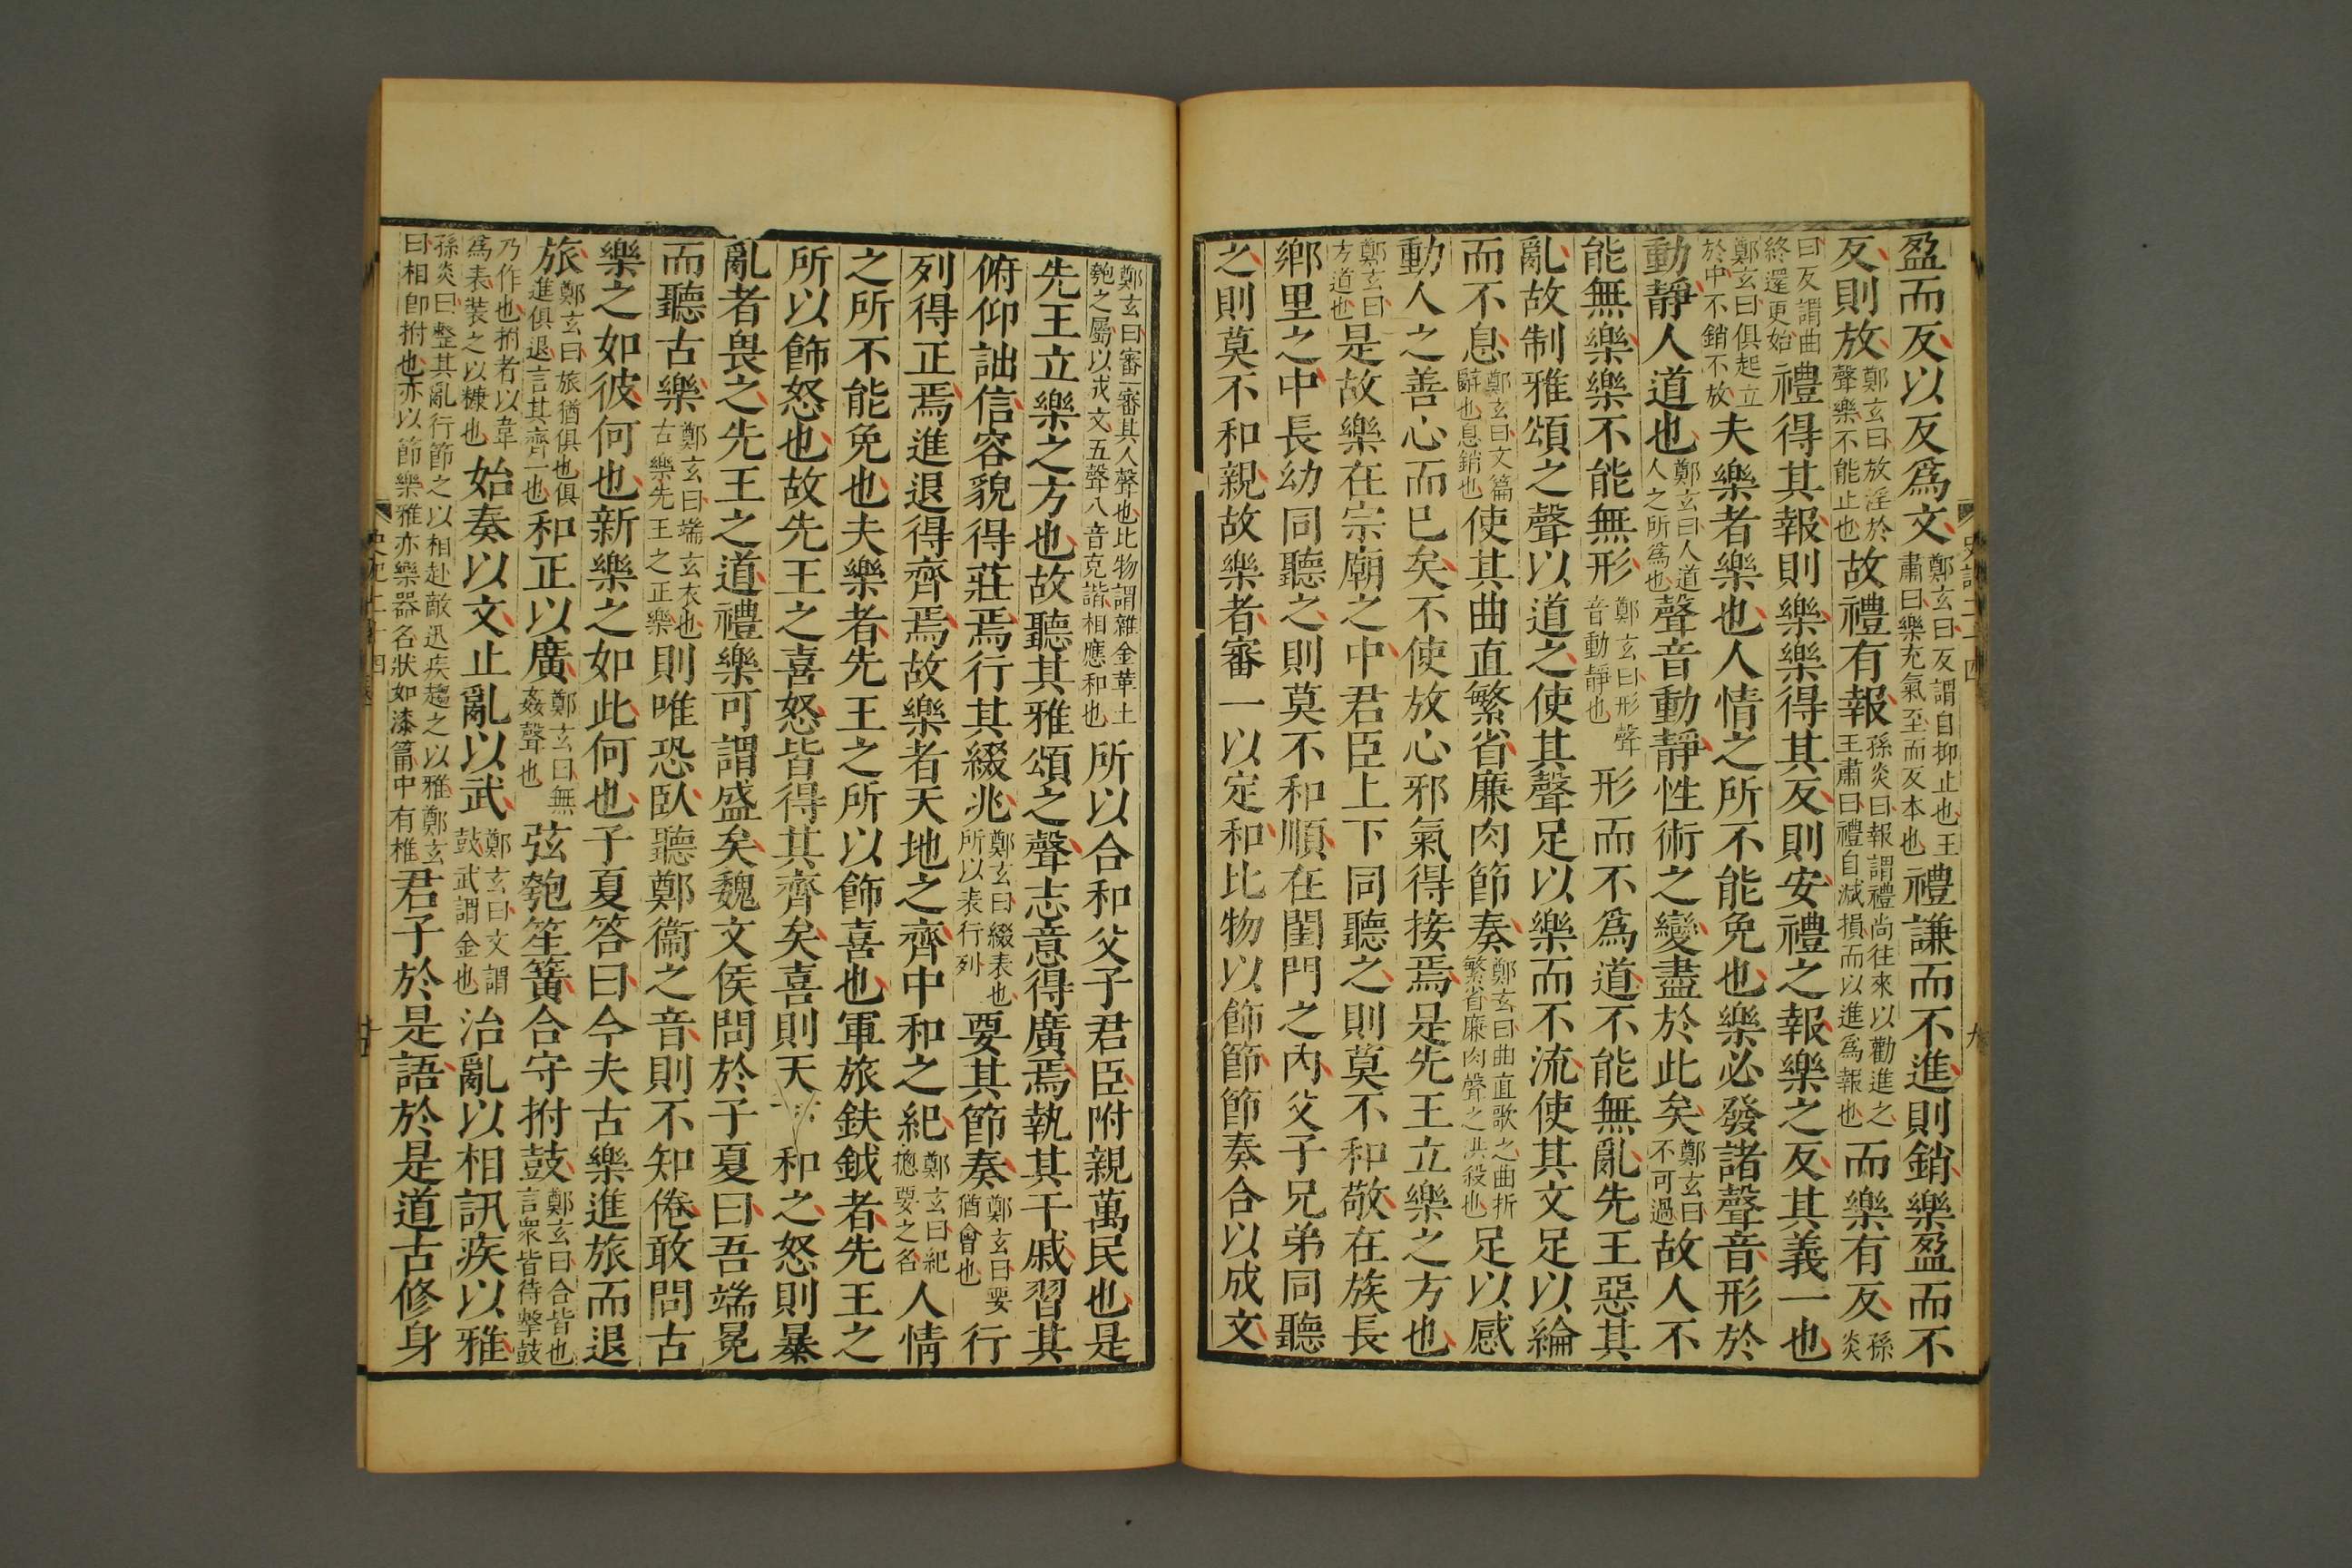 盈而反以反爲文鄭玄曰反謂自抑止也王肅曰樂充氣至而反本也禮謙而不進則銷樂盈而不
反則放鄭玄曰放淫於聲樂不能止也故禮有報孫炎曰報謂禮尚往來以勸進之王肅曰禮自減損而以進爲報也而樂有反孫炎
曰反謂曲終還更始禮得其報則樂樂得其反則安禮之報樂之反其義一也
鄭玄曰俱起立於中不銷不放夫樂者樂也人情之所不能免也樂必發諸聲音形於
動靜人道也鄭玄曰人道人之所爲也聲音動靜性術之變盡於此矣鄭玄曰不可過故人不
能無樂樂不能無形鄭玄曰形聲音動靜也形而不爲道不能無亂先王惡其
亂故制雅頌之聲以道之使其聲足以樂而不流使其文足以綸
而不息鄭玄曰文篇辭也息銷也使其曲直繁省廉肉節奏鄭玄曰曲直歌之曲折繁省廉肉聲之洪殺也足以感
動人之善心而已矣不使放心邪氣得接焉是先王立樂之方也
鄭玄曰方道也是故樂在宗廟之中君臣上下同聽之則莫不和敬在族長
鄉里之中長幼同聽之則莫不和順在閨門之內父子兄弟同聽
之則莫不和親故樂者審一以定和比物以飾節節奏合以成文
鄭玄曰審一審其人聲也比物謂雜金革土匏之屬以成文五聲八音克諧相應和也所以合和父子君臣附親萬民也是
先王立樂之方也故聽其雅頌之聲志意得廣焉執其干戚習其
俯仰詘信容貌得莊焉行其綴兆鄭玄曰綴表也所以表行列要其節奏鄭玄曰要猶會也行
列得正焉進退得齊焉故樂者天地之齊中和之紀鄭玄曰紀揔要之名人情
之所不能免也夫樂者先王之所以飾喜也軍旅鈇鉞者先王之
所以飾怒也故先王之喜怒皆得其齊矣喜則天下和之怒則暴
亂者畏之先王之道禮樂可謂盛矣魏文侯問於子夏曰吾端冕
而聽古樂鄭玄曰端玄衣也古樂先王之正樂則唯恐臥聽鄭衞之音則不知倦敢問古
樂之如彼何也新樂之如此何也子夏答曰今夫古樂進旅而退
旅鄭玄曰旅猶俱也俱進俱退言其齊一也和正以廣鄭玄曰無姦聲也弦匏笙簧合守拊鼓鄭玄曰合皆也言衆皆待擊鼓
乃作也拊者以韋爲表裝之以糠也始奏以文止亂以武鄭玄曰文謂鼓武謂金也治亂以相訊疾以雅
孫炎曰整其亂行節之以相赴敵迅疾趨之以雅鄭玄曰相卽拊也亦以節樂雅亦樂器名狀如漆筩中有椎君子於是語於是道古修身